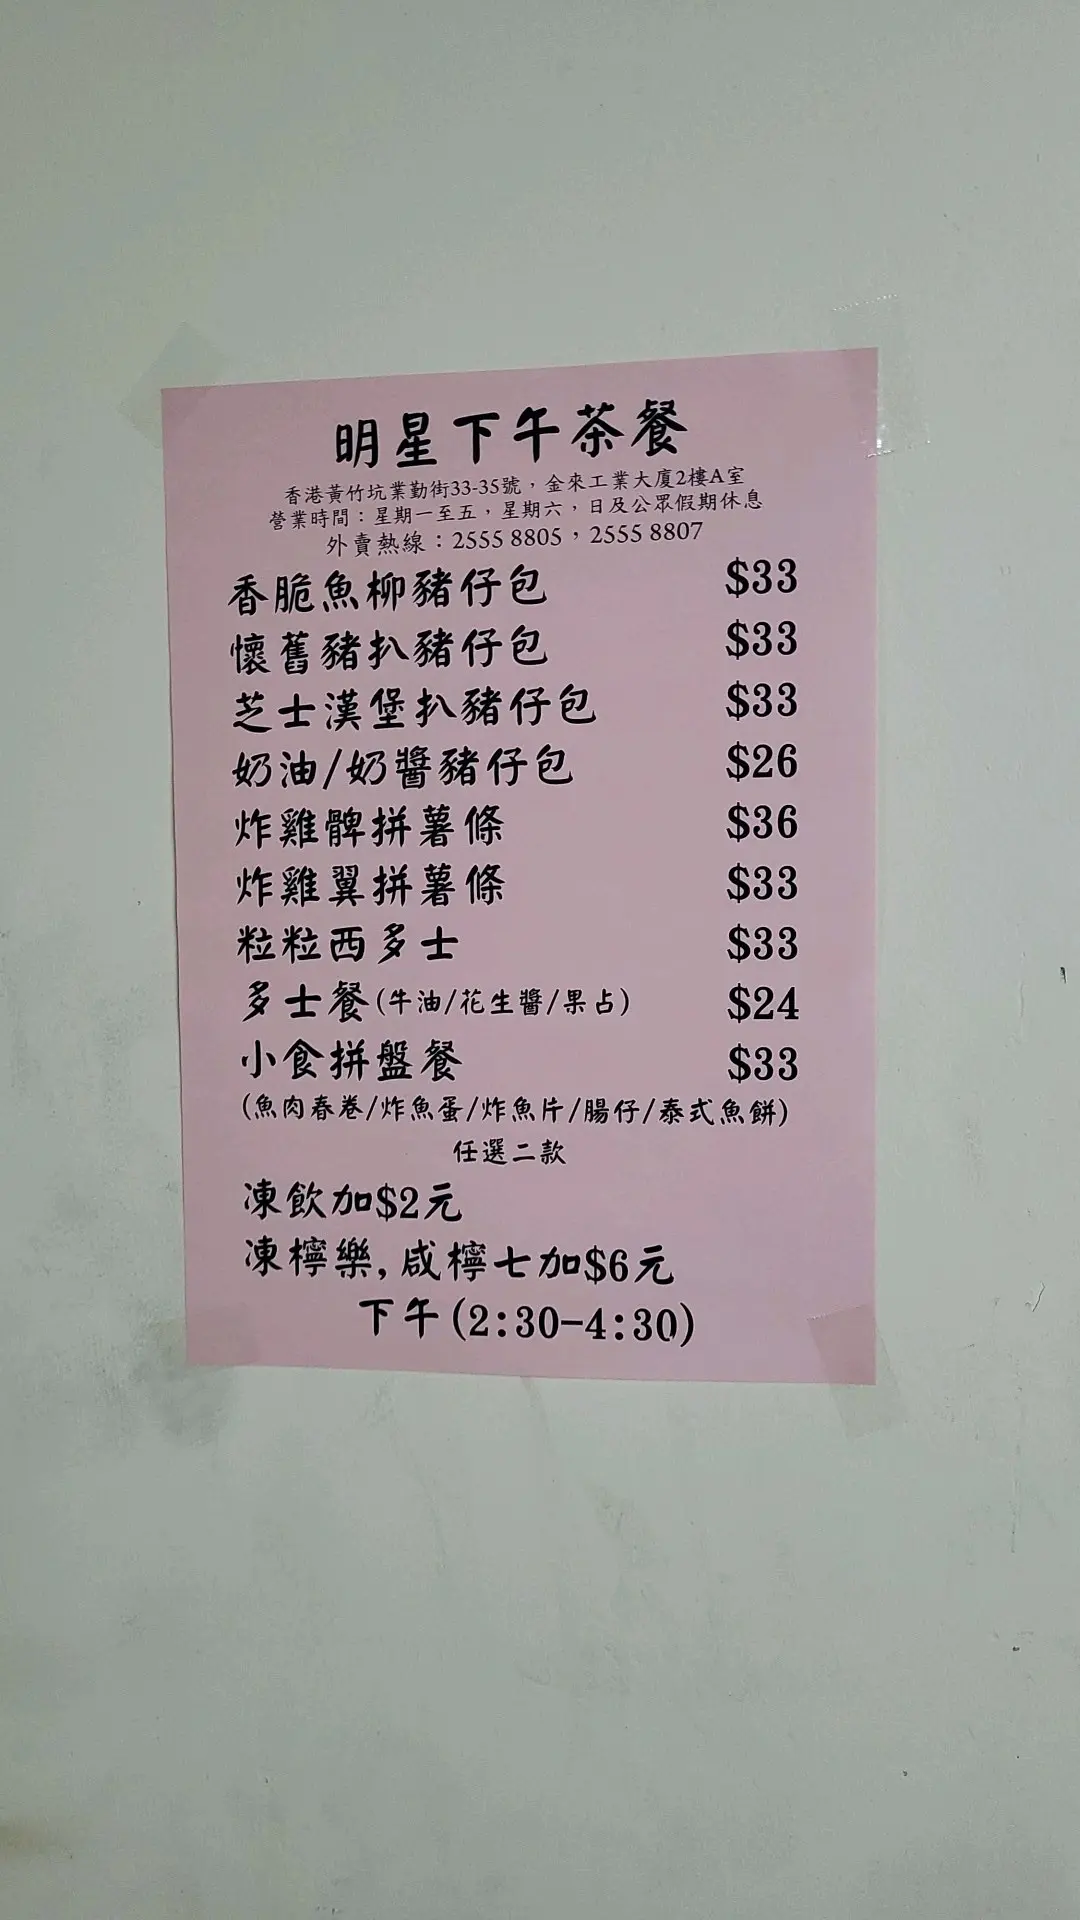 明星下午茶餐
香港黃竹坑業勤街33-35號，金來工業大廈2樓A室
營業時間：星期一至五，星期六，日及公眾假期休息
外賣熱線：2555 8805，2555 8807
香脆魚柳豬仔包 $33
懷舊豬扒豬仔包 $33
芝士漢堡扒豬仔包 $33
奶油/奶醬豬仔包 $26
炸雞髀拼薯條 $36
炸雞翼拼薯條 $33
粒粒西多士 $33
多士餐(牛油/花生醬/果占) $24
小食拼盤餐 $33
(魚肉春卷/炸魚蛋/炸魚片/腸仔/泰式魚餅)
任選二款
凍飲加$2元
凍檸樂,咸檸七加$6元
下午(2:30-4:30)